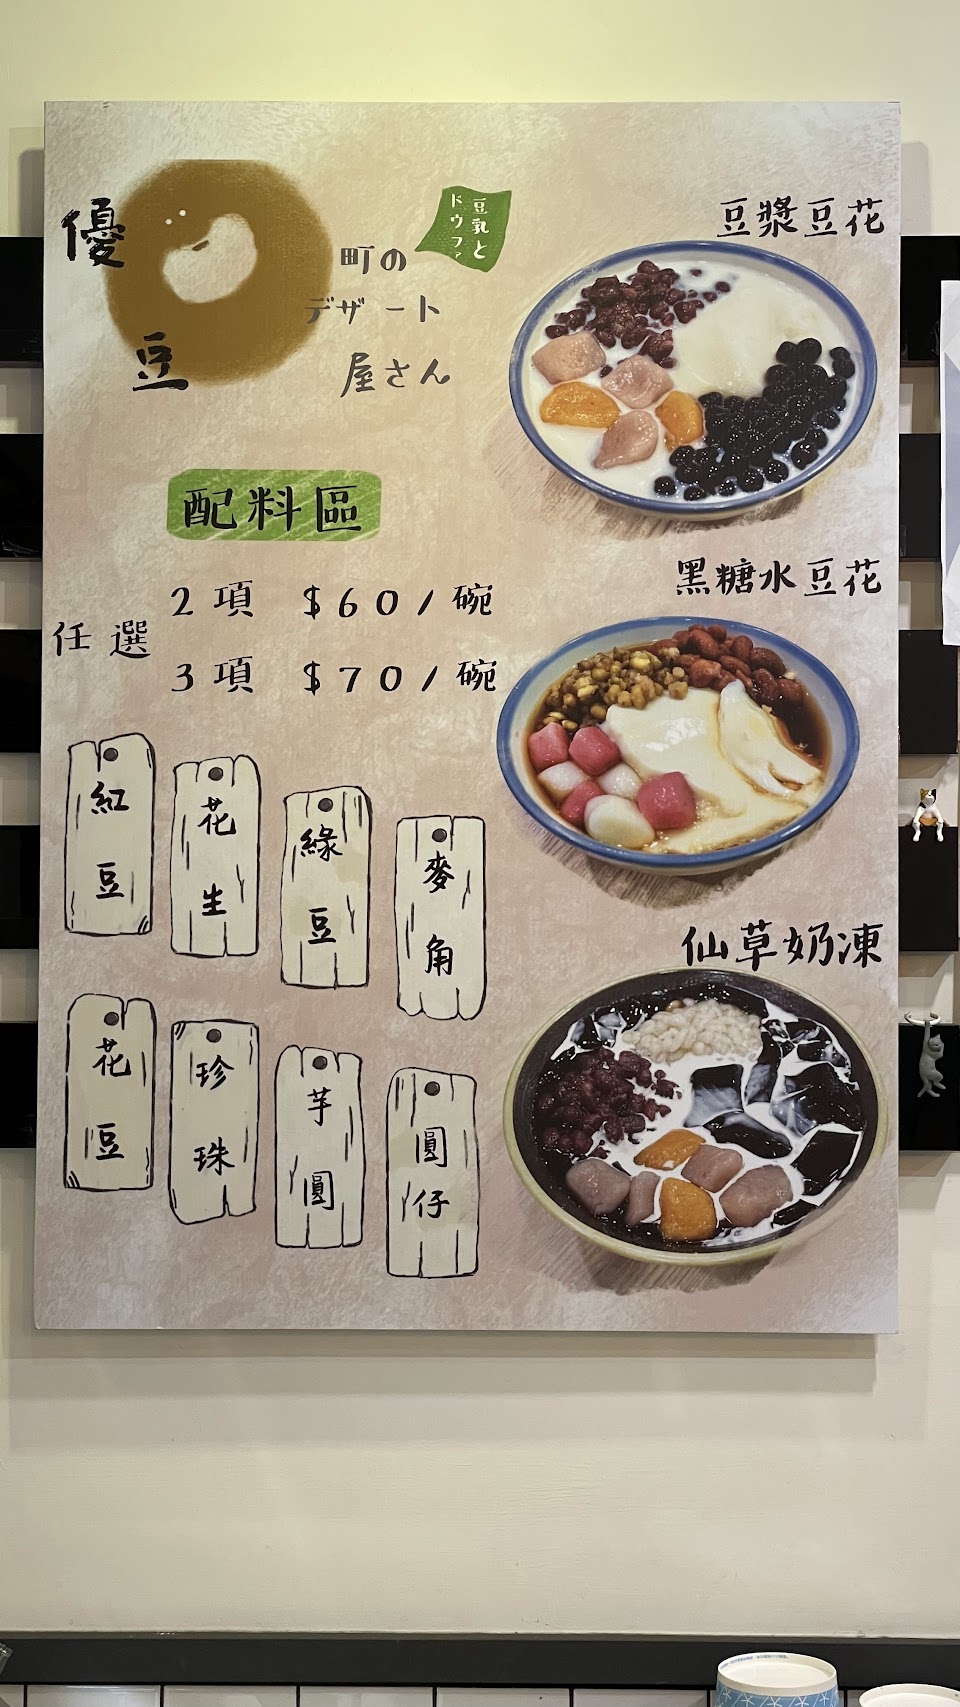 優豆
町の
デザート
屋さん
豆乳と
ドウファ
配料區
任選
2項 $60/碗
3項 $70/碗
紅豆
花生
綠豆
麥角
花豆
珍珠
芋圓
圓仔
豆漿豆花
黑糖水豆花
仙草奶凍